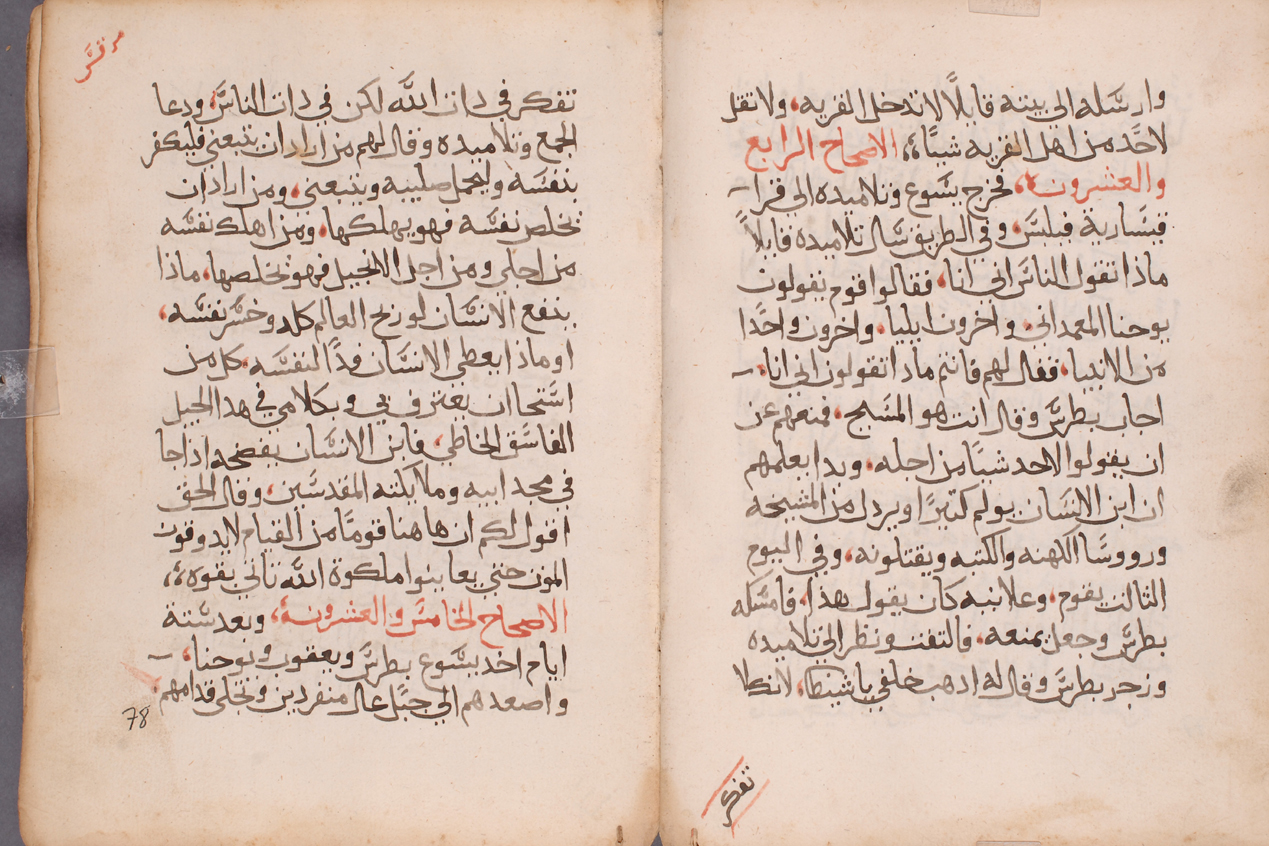 وارسله الى بيته قايلاً لا تدخل القريه، ولا تقل
لاحد من اهل القريه شياً،؛ الاصحاح الرابع
والعشرون،؛ فخرج يسوع وتلاميده الى قرا
قيسارية فيلبس، وفي الطريق سال تلاميده قايلاً
ماذا تقول الناس اني انا، فقالوا قوم يقولون
يوحنا المعمداني، واخرون ايليا، واخرون واحدا
من الانبيا، فقال لهم فانتم مادا تقولون اني انا،
اجاب بطرس وقال انت هو المسيح، فمنعهم عن
ان يقولوا لاحد شياً من اجله، وبدا يعلمهم
ان ابن الانسان يولم كتيرًا ويردل من المشيخه
وروسا الكهنه والكتبه ويقتلونه، وفي اليوم
الثالث يقوم، وعلانيه كان يقول هذا، فامسكه
بطرس وجعل يمنعه، فالتفت ونظر الى تلاميده
وزجر بطرس وقال له ادهب خلفي يا شيطا، لانكلا
تفكر
مرقس
تفكر في دات الله لكن في دات الناس، ودعا
الجمع وتلاميده وقال لهم من اراد ان يتبعني فليكفر
بنفسه وليحمل صليبه ويتبعني، ومن اراد ان
يخلص نفسه فهو يهلكها، ومن اهلك نفسه
من اجلي ومن اجل الانجيل فهو يخلصها، ماذا
ينفع الانسان لو ربح العالم كله وخسر نفسه،
او ماذا يعطي الانسان فدًا لنفسه، كل من
استحا ان يعترف بي وبكلامي في هدا الجيل
الفاسق الخاطي، فابن الانسان يفضحه اذا جا
في مجد ابيه وملايكته المقدسين، وقال الحق
اقول لكم ان هاهنا قومًا من القيام لا يدوقون
الموت حتي يعاينوا ملكوة الله تاتي بقوه،؛
الاصحاح الخامس والعشرون،؛ وبعد ستة
ايام اخد يسوع بطرس ويعقوب ويوحنا،
واصعدهم الي جبل عال منفردين وتجلى قدامهم،
78